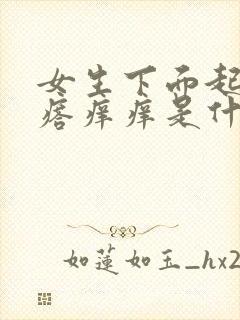 女生下面起
瘩痒痒是什
如莲如玉_hx2